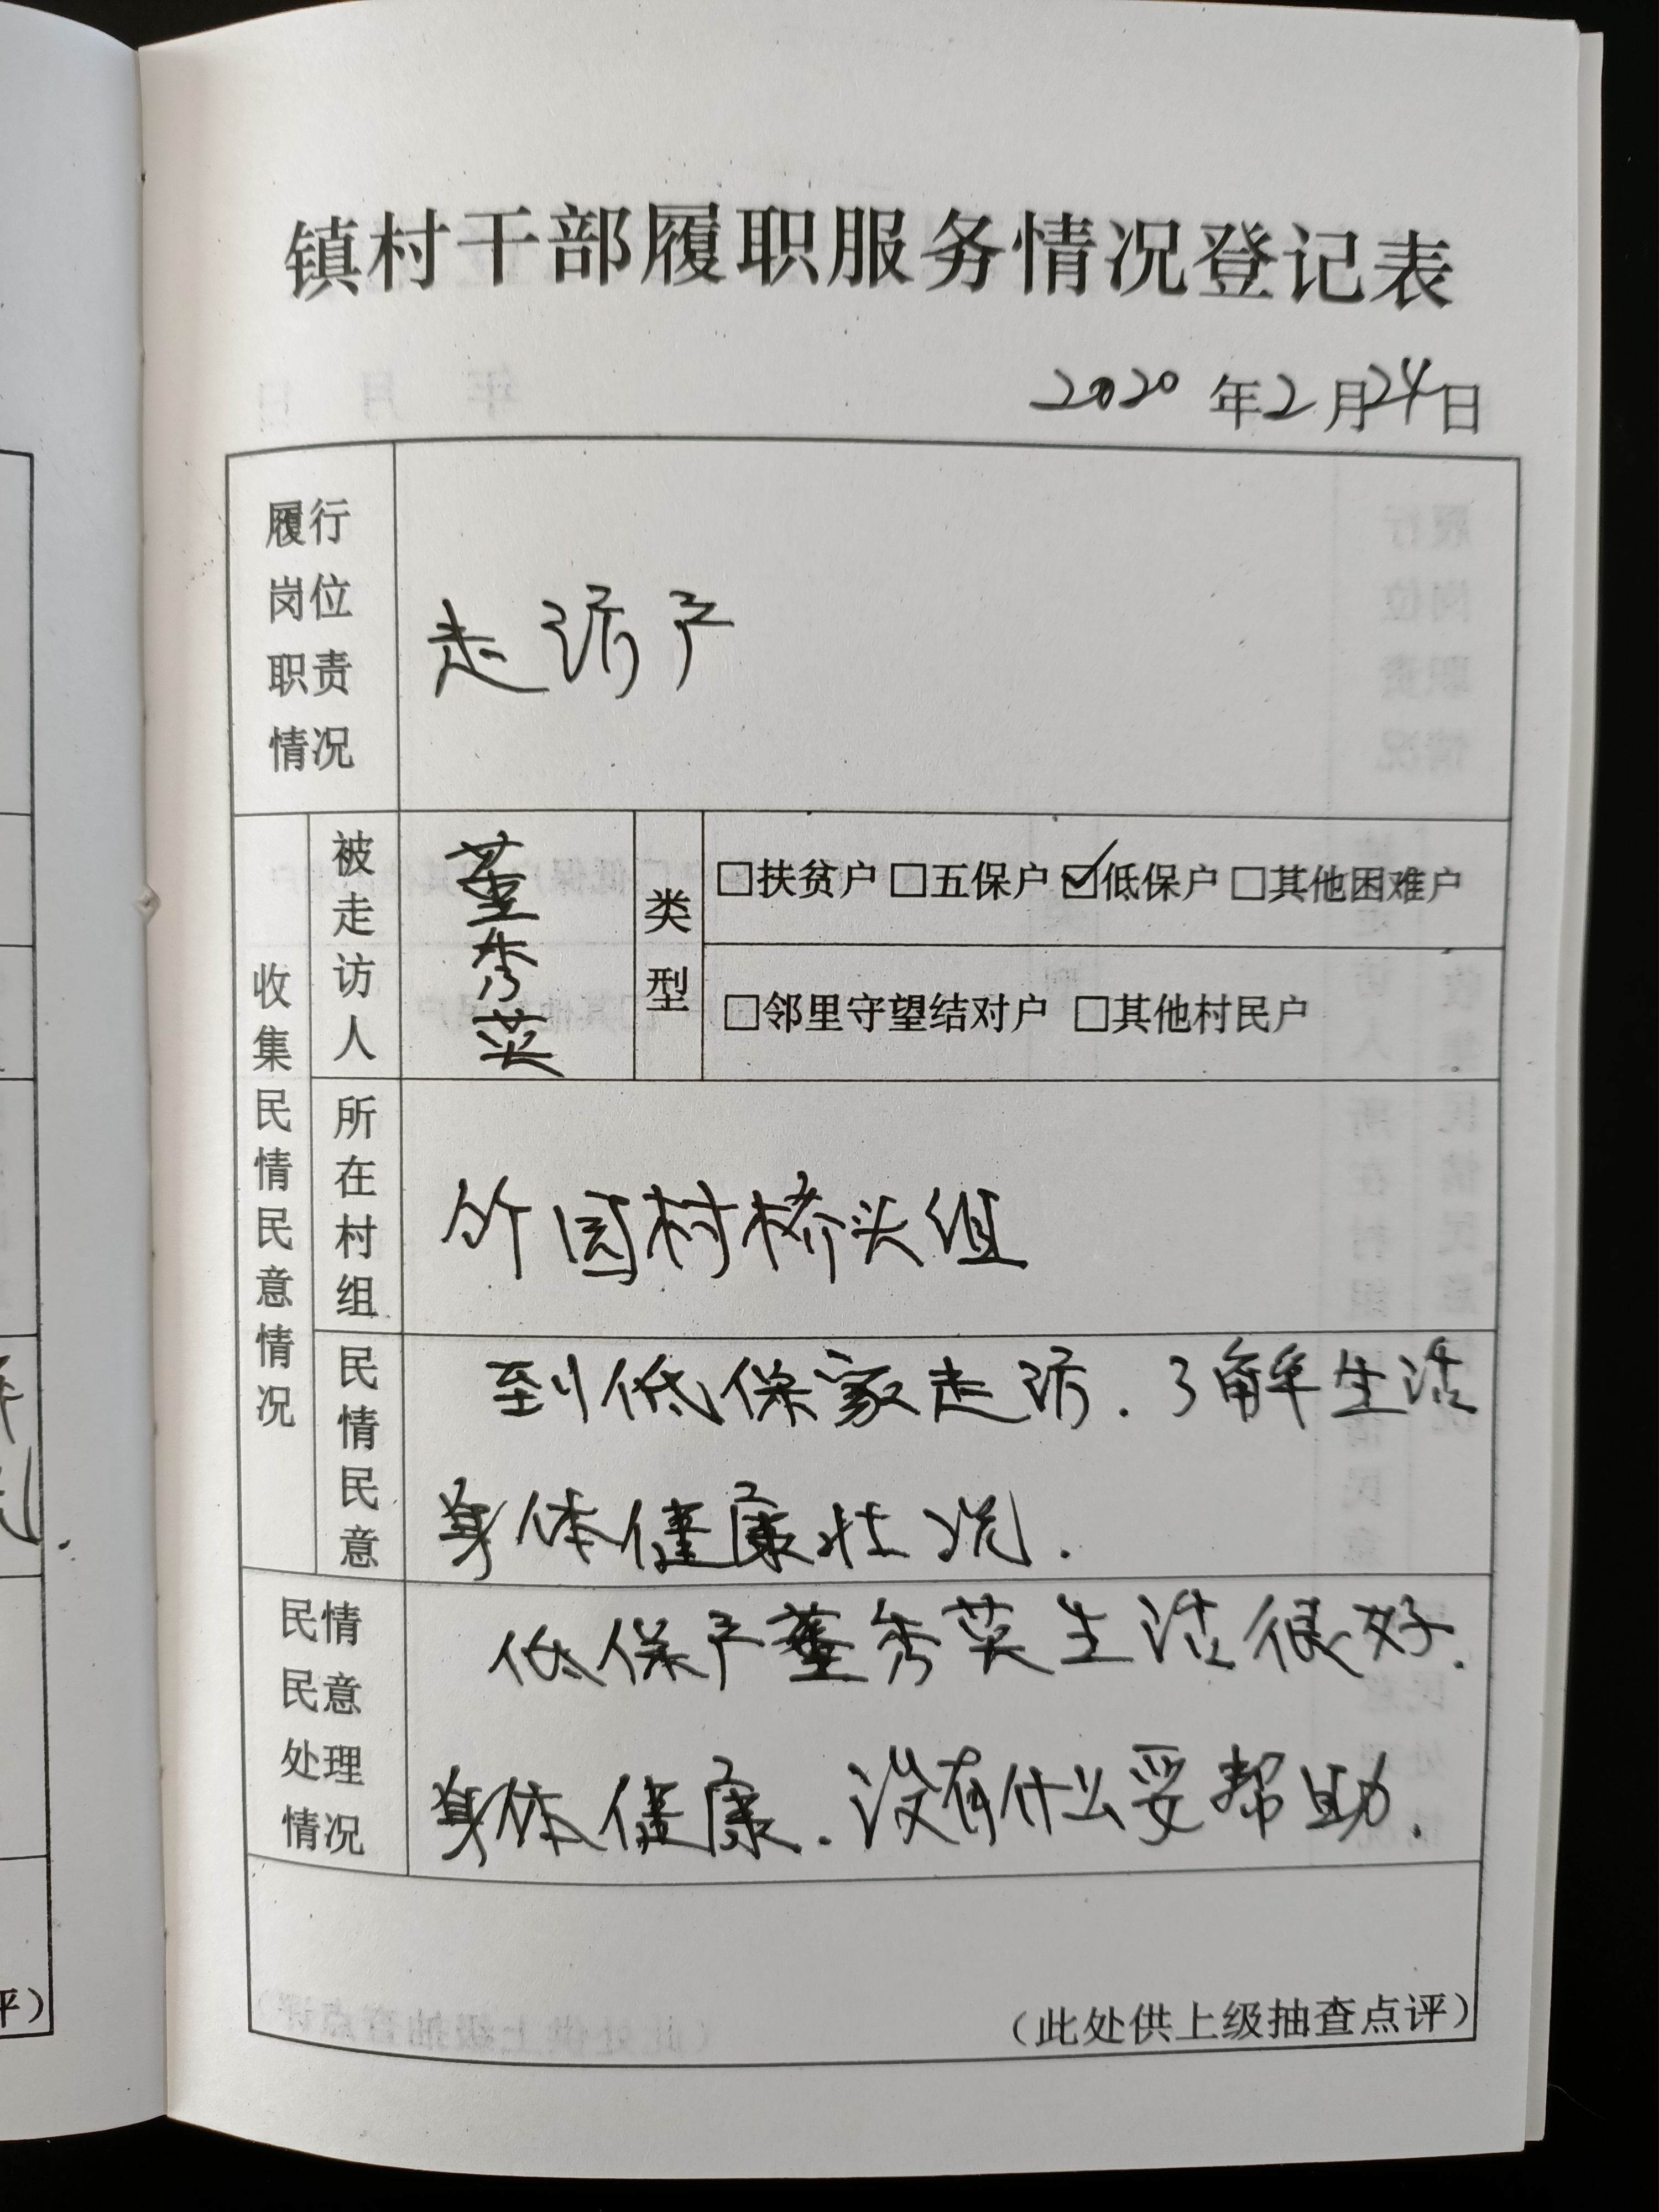 镇村干部履职服务情况登记表
2020年2月24日
履行
岗位
职责
情况
走访户
收集民情民意情况
被走访人
董秀英
类型
□扶贫户 □五保户 ☑低保户 □其他困难户
□邻里守望结对户 □其他村民户
所在村组
竹园村桥头组
民情民意
到低保家走访.了解生活
身体健康壮况.
民情
民意
处理
情况
低保户董秀英生活很好.
身体健康.没有什么要帮助.
(此处供上级抽查点评)
平)